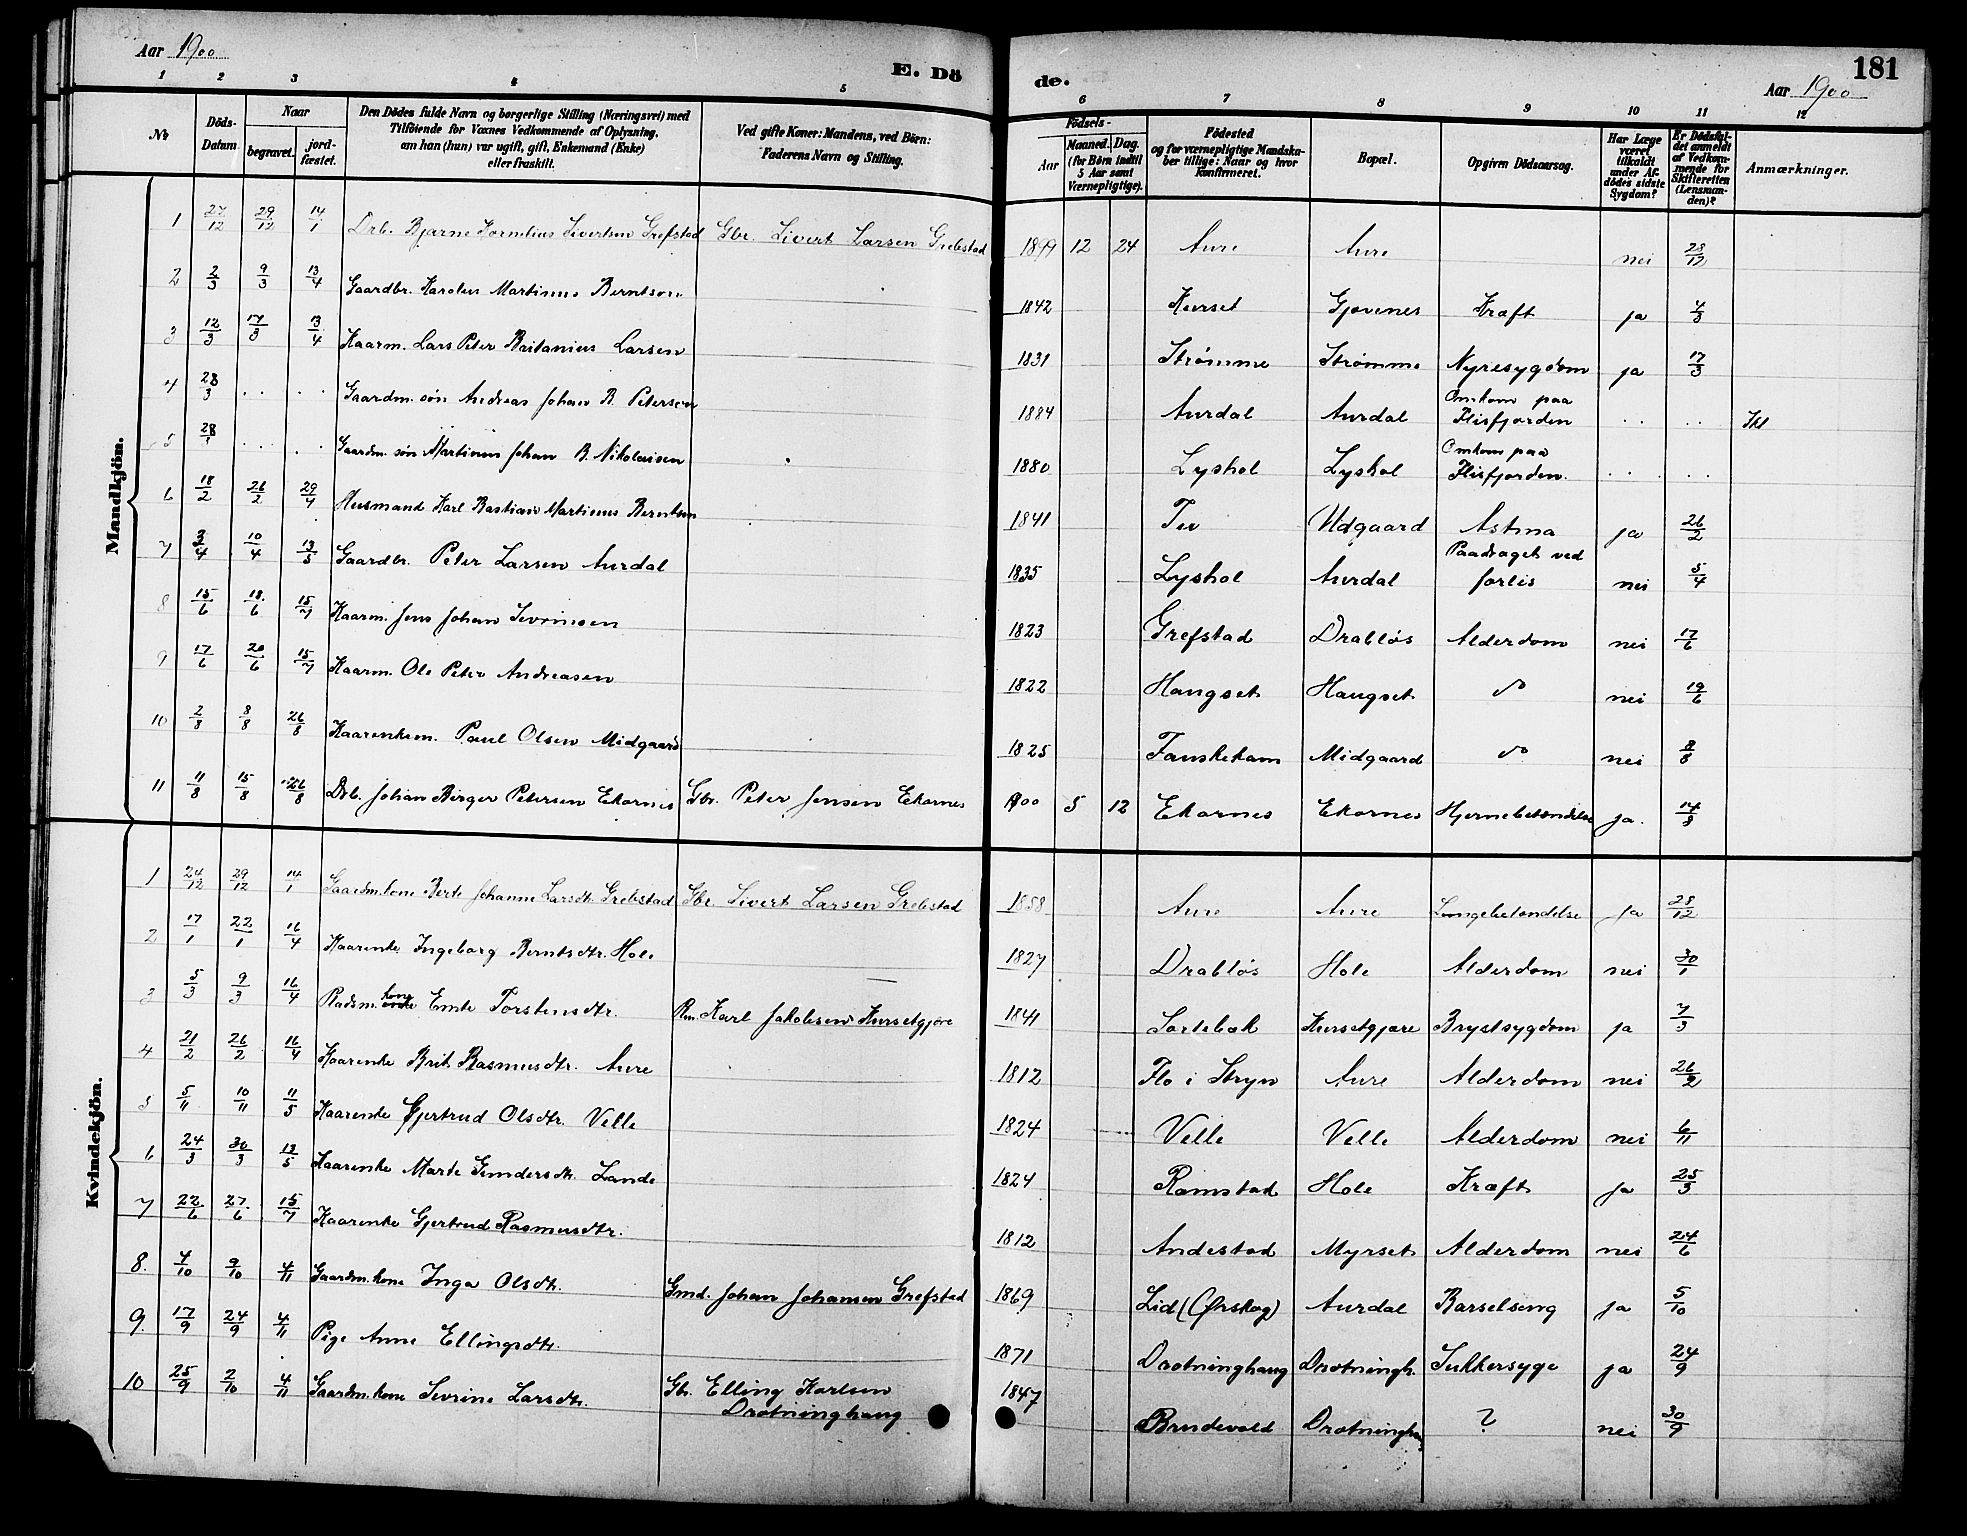 Aar 1900
E. Dö
de.
181
Aar 1900
1 2 3 4 5 6 7 8 9 10 11 12
No
Döds-Datum.
Naar
begravet.
jord-fæstet.
Den Dödes fulde Navn og borgerlige Stilling (Næringsvei) med
Tilföiende for Voxnes Vedkommende af Oplysning,
om han (hun) var ugift, gift, Enkemand (Enke)
eller fraskilt.
Ved gifte Koner: Mandens, ved Börn:
Faderens Navn og Stilling.
Födsels-
Aar
Maaned. Dag.
(for Börn indtil
5 Aar samt
Værnepligtige).
Födested
og for værnepligtige Mandska-
ber tillige: Naar og hvor
konfirmeret.
Bopæl.
Opgiven Dödsaarsag.
Har Læge
været
tilkaldt
under Af-
dödes sidste
Sygdom?
Er Dödsfal-
det anmeldt
af Vedkom-
mende for
Skifteretten
(Lensman-
den)?
Anmærkninger.
Mandkjön.
1 27/12 29/12 14/1 Drb. Bjarne Kornelius Sivertsen Grefstad Gbr. Sivert Larsen Grebstad 1899 12 24 Aure Aure nei 28/12
2 2/3 9/3 13/4 Gaardbr. Karolus Martinus Berntsen 1842 Kurset Gjævenes Kræft ja 4/3
3 12/3 17/3 13/4 Kaarm. Lars Peter Baitanius Larsen 1831 Strømme Strømme Nyresygdom ja 17/3
4 28/3 . . . . Gaardm. søn Andreas Johan B. Petersen 1884 Aurdal Aurdal Omkom paa Flisfjorden . . . .
5 28 . . . . Gaardm. søn Martinus Johan B. Nikolaisen 1880 Lyshol Lyshol Omkom paa Flisfjorden. . . . .
6 18/2 26/2 29/4 Husmand Karl Bastian Martinus Berntsen 1841 Tu Udgaard Astma ja 26/2
7 3/4 10/4 13/5 Gaardbr. Peter Larsen Aurdal 1835 Lyshol Aurdal Paadraget ved forlis nei 5/4
8 15/6 18/6 15/7 Kaarm. Jens Johan Sevrinsen 1823 Grefstad Drabløs Alderdom nei 17/6
9 17/6 20/6 15/7 Kaarm. Ole Peter Andreasen 1822 Haugset Haugset do nei 19/6
10 2/8 8/8 26/8 Kaarenkem. Paul Olsen Midgaard 1825 Fauskekam Midgaard do nei 8/8
11 11/8 15/8 26/8 Drb. Johan Birger Petersen Ekornes Gbr. Peter Jensen Ekornes 1900 5 12 Ekornes Ekornes Hjernebetændelse ja. 14/8
Kvindekjön.
1 24/12 29/12 14/1 Gaardm.kone Berte Johanne Larsdtr. Grebstad Gbr. Sivert Larsen Grebstad 1858 Aure Aure Lungebetændelse Ja 28/12
2 17/1 22/1 16/4 Kaarenke Ingeborg Berntsdtr. Hole 1827 Drabløs Hole Alderdom nei 30/1
3 5/3 9/3 16/4 Pladsm. kone Emte Torstensdtr. Pm. Karl Jakobsen Kursetgjære 1841 Sortebak Kursetgjære Brystsygdom ja 7/3
4 21/2 26/2 16/4 Kaarenke Brit Rasmusdtr. Aure 1812 Flo i Stryn Aure Alderdom nei 26/2
5 5/11 10/11 11/5 Kaarenke Gjertrud Olsdtr. Velle 1824 Velle Velle Alderdom nei 6/11
6 24/3 30/3 13/5 Kaarenke Marte Gundersdtr. Lande 1824 Ramstad Hole Kræft Ja 25/3
7 22/6 27/6 15/7 Kaarenke Gjertrud Rasmusdtr. 1812 Andestad Myrset Alderdom nei 24/6
8. 4/10 9/10 4/11 Gaardm.kone Inga Olsdtr. Gmd. Johan Johansen Grefstad 1869 Lid (Ørskog) Aurdal Barselseng ja 5/10
9. 17/9 24/9 4/11 Pige Anne Ellingsdtr. 1871 Drotninghaug Drotningh. Sukkersyge ja 24/9
10 25/9 2/10 4/11 Gaardm.kone Sevrine Larsdtr. Gb. Elling Karlsen Drotninghaug 1847 Brudevold Drotninghau ? nei 30/9